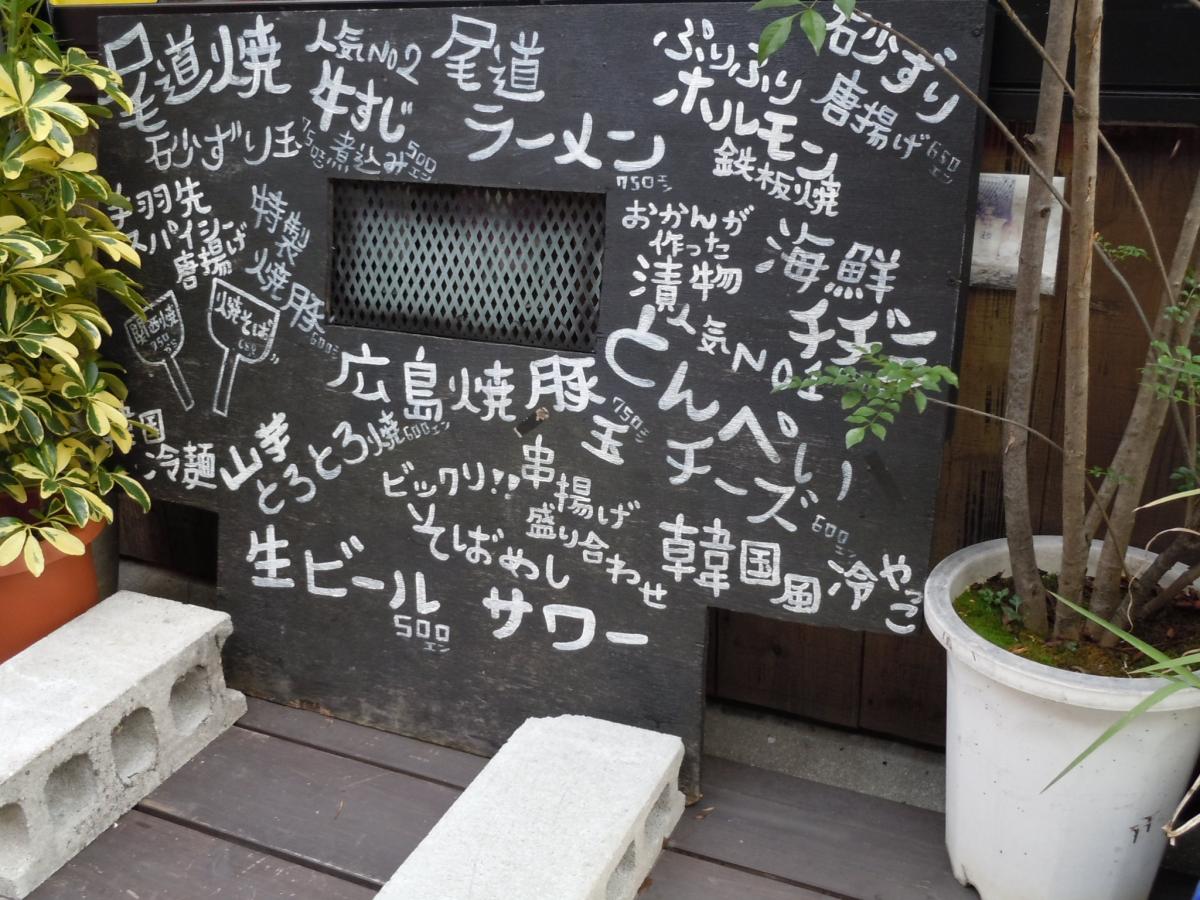 尾道焼
砂ずり玉
750エン
人気NO2
牛すじ
煮込み
500エン
尾道
ラーメン
750エン
ぷりぷり
ホルモン
鉄板焼
砂ずり
唐揚げ
650エン
手羽先
スパイシー
唐揚げ
特製
焼豚
600エン
おかんが
作った
漬物
海鮮
チヂミー
関西焼
750エン
焼そば
広島焼豚
玉
750エン
人気NO1
とんぺい
チーズ
600エン
韓国
冷麺
山芋
とろとろ焼
600エン
ビックリ!!
串揚げ
盛り合わせ
そばめし
生ビール
500エン
サワー
韓国風冷やっこ